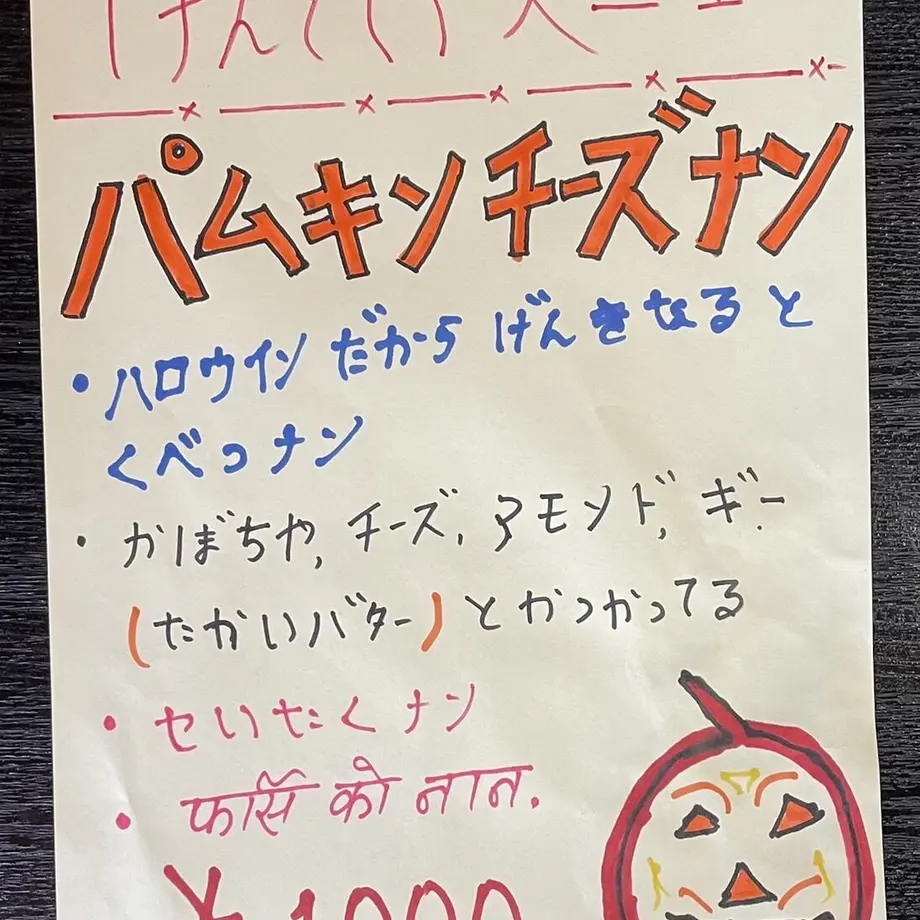 げんてい メニュー
パムキンチーズナン
・ハロウイン だから げんきなると
くべつナン
・かぼちや, チーズ, アモンド, ギー
(たかいバター) とかつかってる
・せいたくナン
・फार्सि को नान.
¥1000